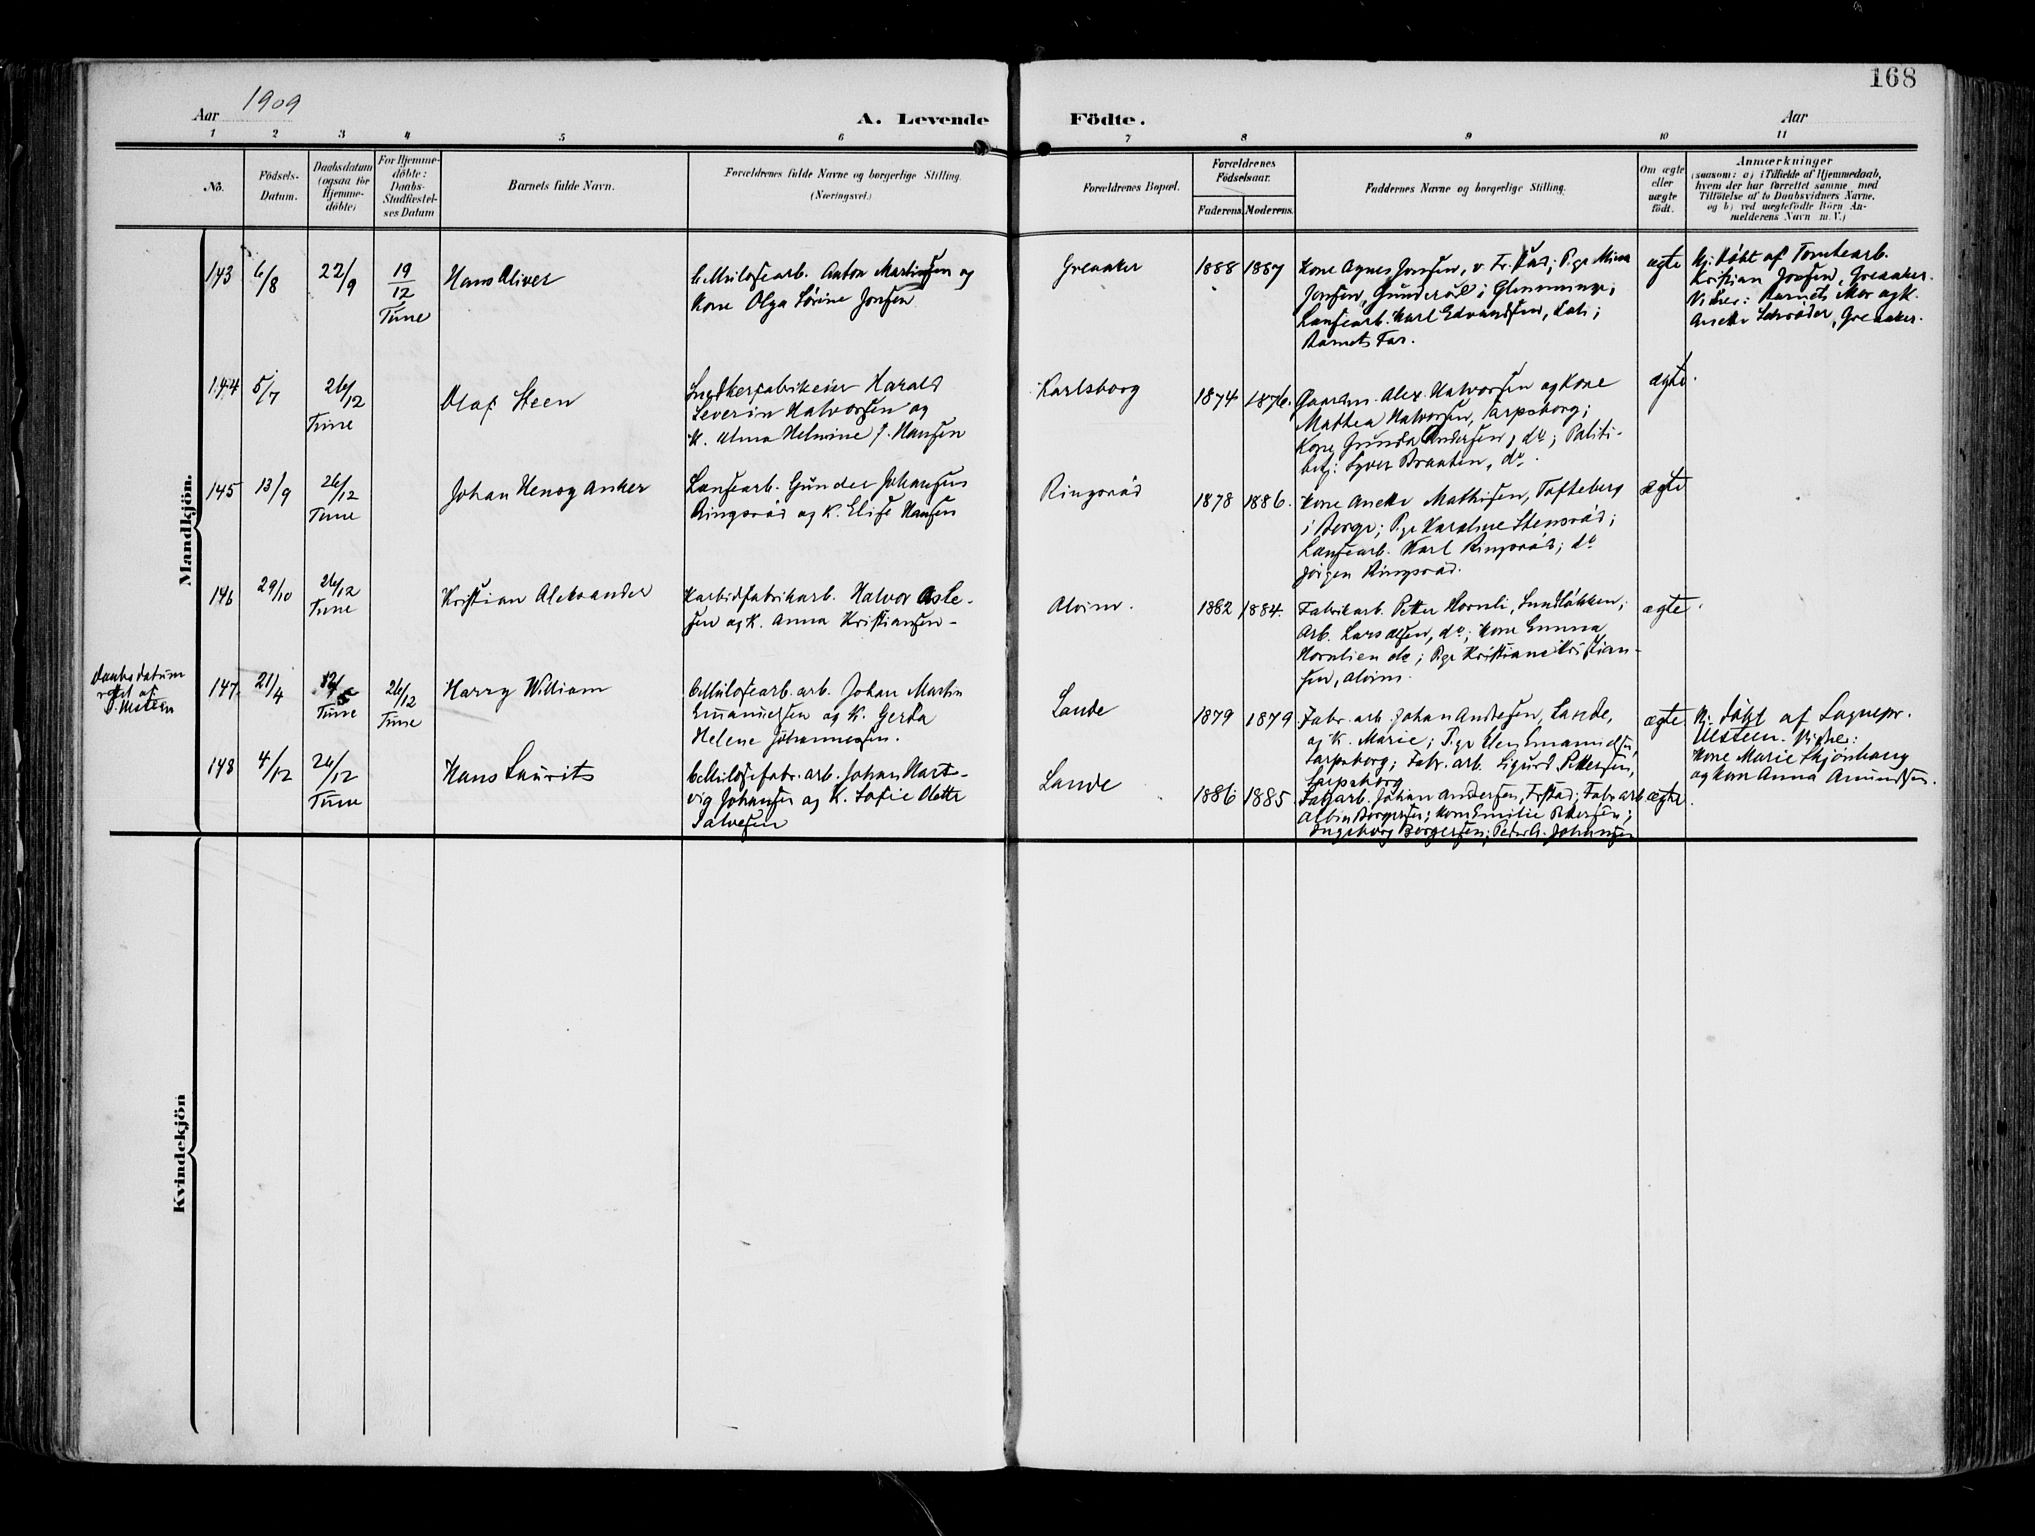 168
Aar 1909
A. Levende Födte.
Aar
1 2 3 4 5 6 7 8 9 10 11
No.
Födsels-
Datum.
Daabsdatum
(ogsaa for
Hjemme-
døbte)
For Hjemme-
døbte:
Daabs-
Stadfæstel-
ses Datum
Barnets fulde Navn.
Forældrenes fulde Navne og borgerlige Stilling.
(Næringsvei.)
Forældrenes Bopæl.
Forældrenes
Födselsaar.
Faderens. Moderens.
Faddernes Navne og borgerlige Stilling.
Om ægte
eller
uægte
født.
Anmærkninger
(saasom: a) i Tilfælde af Hjemmedaab,
hvem der har forrettet samme med
Tilføielse af to Daabsvidners Navne,
og b) ved uægtefødte Børn An-
melderens Navn m. V.)
Mandkjön.
143 6/8 22/9 19/12 Tune
Hans Oliver
Cellulosearb. Anton Martinsen og
Kone Olga Lovine Jonsen
Greaaker
1888 1887
Kone Agnes Jonsen, v. Fr.stad; Pige Mina
Jonsen, Gunderød i Glemminge;
Landsearb. Karl Edvardsen,
Barnets Far.
ægte
Hj. døbt af Tomtearb.
Kristian Jonsen, Greaaker.
Vidner: Barnets Mor og K.
Anette Schrøder, Greaaker.
144 5/7 26/12 Tune
Olaf Steen
Snedkerfabrikeier Harald
Severin Halvorsen og
K. Alma Helmine J. Hansen
Karlsborg
1874 1876.
Gaardm. Alex. Halvorsen og Kone
Mathea Halvorsen, Sarpsborg;
Kone Gunda Andersen, do; Politi-
betj. Syver Braaten, do.
ægte.
145 13/9 26/12 Tune
Johan Henry Anker
Landsearb. Gunder Johansen
Ringsrød og K. Elise Hansen
Ringsrød
1878 1886.
Kone Anette Mathisen, Tofteberg
i Borge; Pige Karoline Stensrød;
Landsearb. Karl Ringsrød; do
Jørgen Ringsrød.
ægte
146 29/10 26/12 Tune
Kristian Aleksander
Karbidfabrikarb. Halvor Asle-
sen og K. Anna Kristiansen-
Alvim.
1882 1884.
Fabrikarb. Petter Hornli, Sundløkken;
Arb. Lars Olsen, do; Kone Emma
Hornlien do; Pige Kristiane Kristian-
sen, Alvim.
ægte.
Daabsdatum
rettet af
Ulsteen
147. 21/4 12/5 Tune 26/12 Tune
Harry William
Cellulosearb. arb. Johan Martin
Emanuelsen og K. Gerda
Helene Johannesen.
Lande
1879 1879.
Fabr. arb. Johan Andersen, Lande,
og K. Marie; Pige Emanuelsen,
Sarpsborg; Fabr. arb. Sigurd Pettersen,
Sarpsborg
ægte
Hj. døbt af Sognepr.
Ulsteen. Vidner:
Kone Marie Skjønhaug
og Kone Anna Amundsen.
148 4/12 26/12 Tune
Hans Laurits
Cellulosefabr. arb. Johan Hart-
vig Johansen og K. Sofie Olette
Salvesen
Lande
1886 1885.
Fabr.arb. Johan Andersen, Frstad; Fabr. arb.
Albin Borgersen; Kone Emilie Pettersen;
Ingeborg Borgersen; Peder A. Johansen
ægte.
Kvindekjön